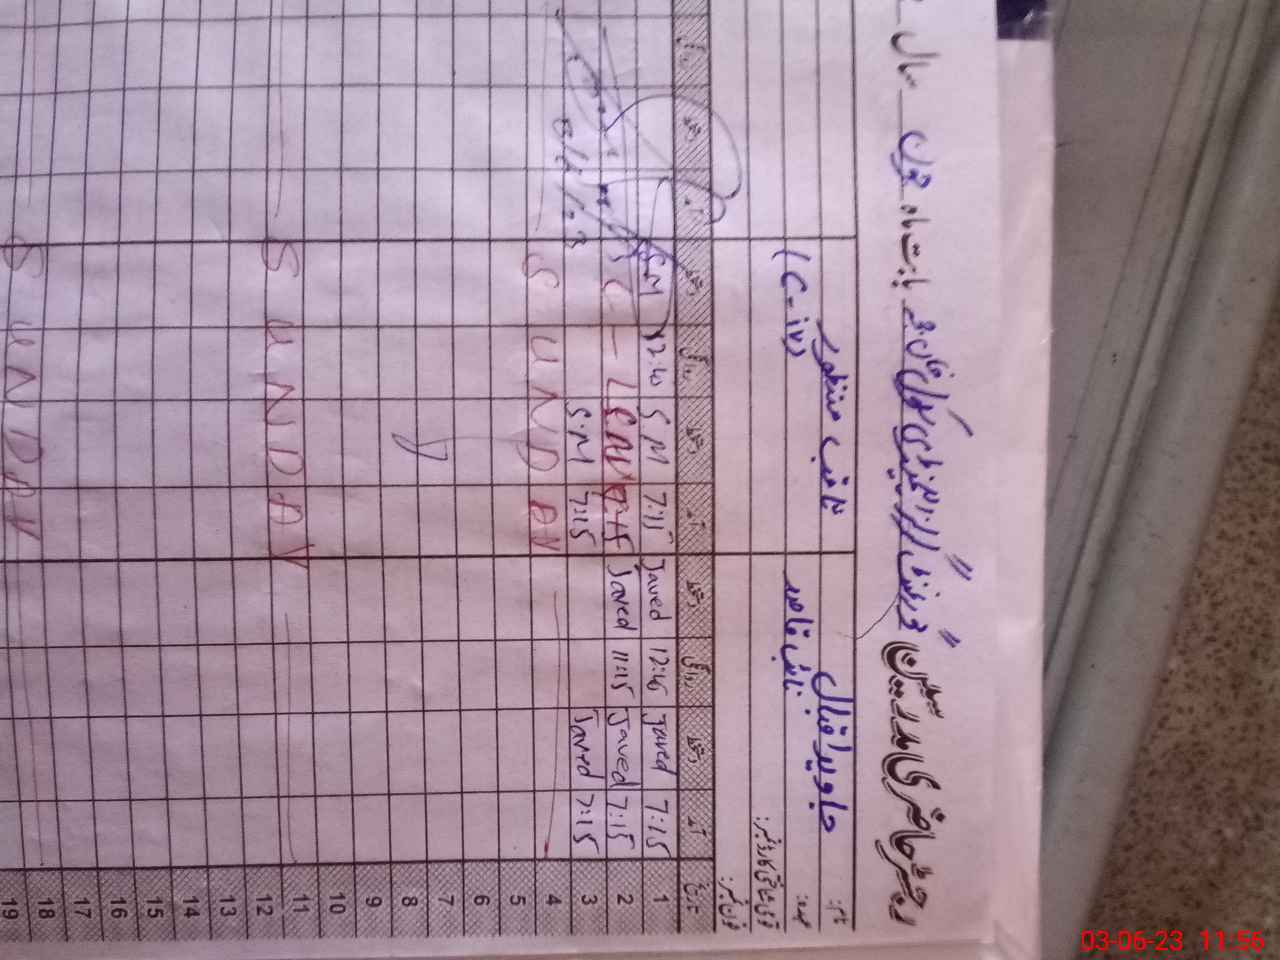 رجسٹر حاضری مدرسین گورنمنٹ بابت ماہ جون سال
نام: جاوید اقبال ثاقب منظور
عہدہ: نائب قاصد (C-iv)
قومی شناختی کارڈ نمبر:
فون نمبر:
تاریخ آمد دستخط روانگی دستخط آمد دستخط روانگی دستخط آمد دستخط روانگی
1 7:15 Javed 12:40 Javed 7:15 S.M 12:40 S.M
2 7:15 Javed 11:15 Javed
3 7:15 Javed 7:15 S.M
4 SUNDAY
5
6
7
8
9
10
11 SUNDAY
12
13
14
15
16
17
18 SUNDAY
19
03-06-23 11:56